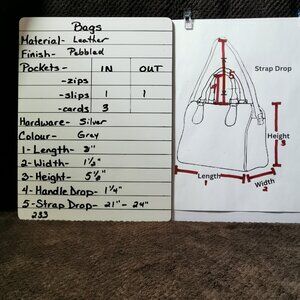 Bags
Material- Leather
Finish- Pebbled
Pockets- IN OUT
-zips
-slips 1 1
-cards 3
Hardware- Silver
Colour- Grey
1-Length- 8"
2-Width- 1½"
3-Height- 5½"
4-Handle Drop- 1¼"
5-Strap Drop- 21" - 24"
233
Strap Drop
5
4
Height
3
Length
1
Width
2